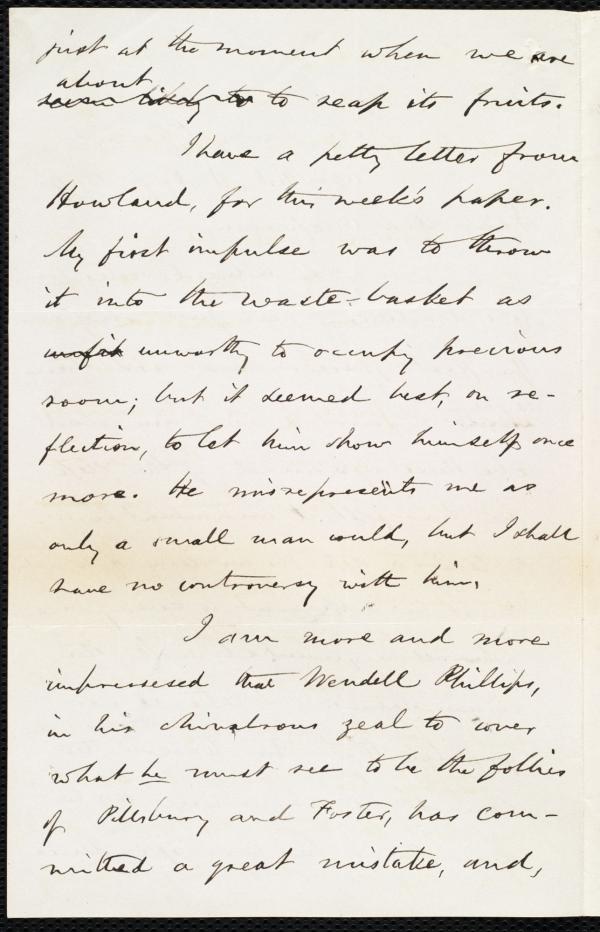 just at the moment when we are
about
seem likely to to reap its fruits.
I have a petty letter from
Howland, for this week's paper.
My first impulse was to throw
it into the waste-basket as
unfit unworthy to occupy precious
room; but it seemed best, on re-
flection, to let him show himself once
more. He misrepresents me as
only a small man could, but I shall
have no controversy with him.
I am more and more
impressesed that Wendell Phillips,
in his chivalrous zeal to cover
what he must see to be the follies
of Pillsbury and Foster, has com-
mitted a great mistake, and,